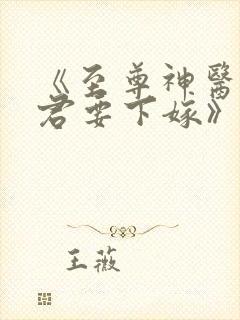 《至尊神醫
君要下嫁》
王薇